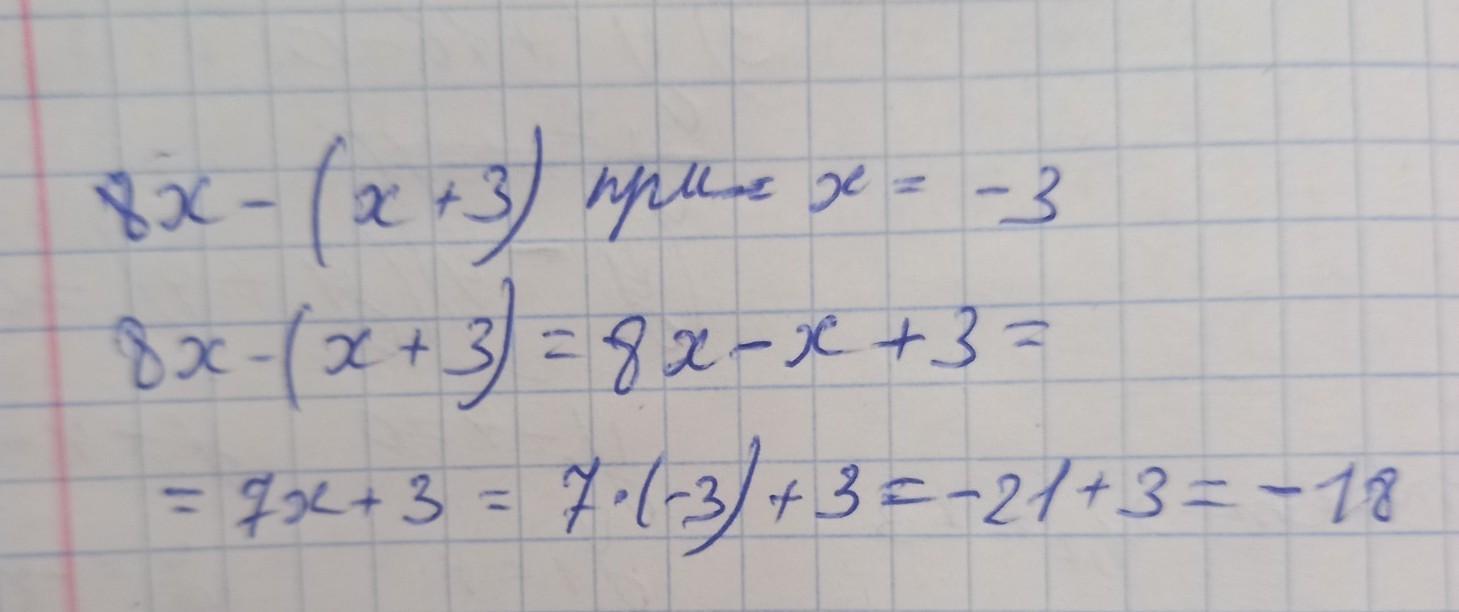 8x - (x + 3) при = x = -3
8x - (x + 3) = 8x - x + 3 =
= 7x + 3 = 7 · (-3) + 3 = -21 + 3 = -18